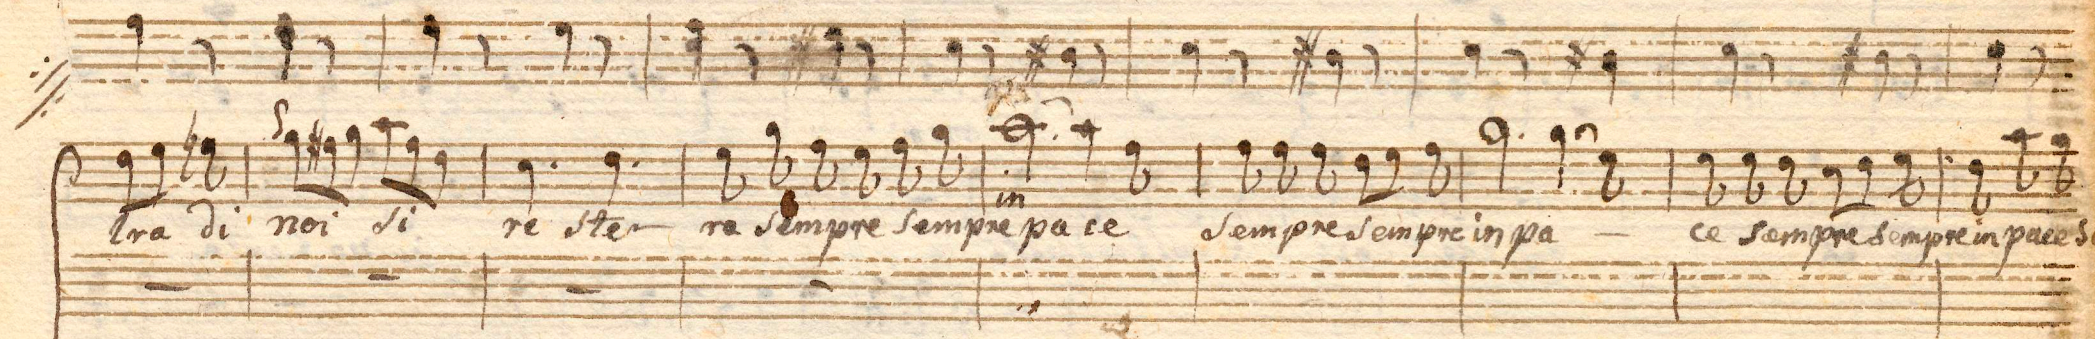 in
tra di noi si re ste- ra sempre sempre pa ce sempre sempre in pa — ce sempre sempre in pace